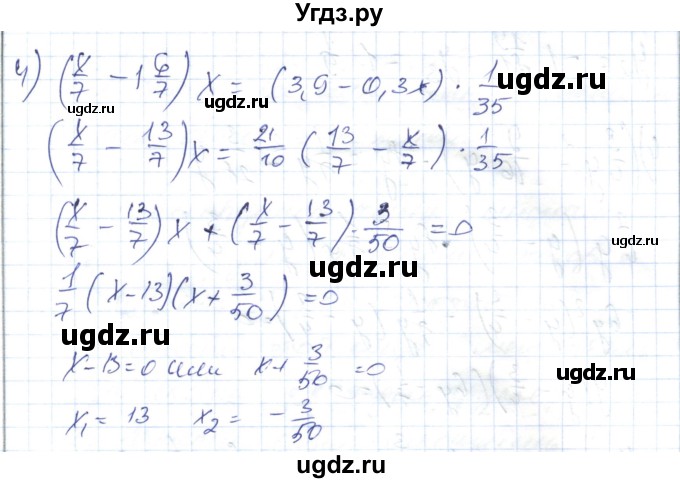 Угдз.ру
4) (x/7 − 1 6/7) x = (3,9 − 0,3x) · 1/35
ugdz.ru ugdz.ru ugdz.ru
(x/7 − 13/7) x = 21/10 (13/7 − x/7) · 1/35
ugdz.ru ugdz.ru
(x/7 − 13/7) x + (x/7 − 13/7) · 3/50 = 0
ugdz.ru
ugdz.ru
1/7 (x−13)(x + 3/50) = 0
ugdz.ru ugdz.ru
x−13=0 или x + 3/50 = 0
ugdz.ru
x₁ = 13 x₂ = −3/50
ugdz.ru ugdz.ru
ugdz.ru